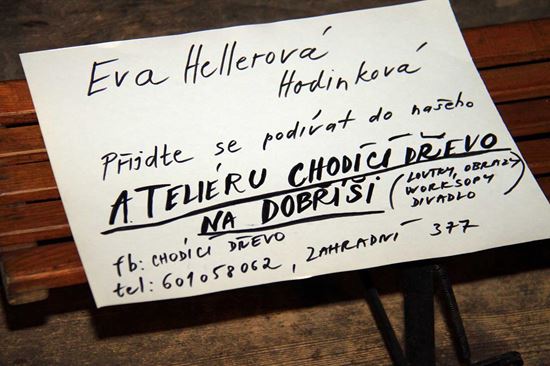 Eva Hellerová
Hodinková
Přijďte se podívat do našeho
ATELIÉRU CHODÍCÍ DŘEVO
NA DOBŘÍŠI (LOUTKY, OBRAZY,
WORKSOPY
DIVADLO)
fb: CHODÍCÍ DŘEVO
tel: 601058062, ZAHRADNÍ 377